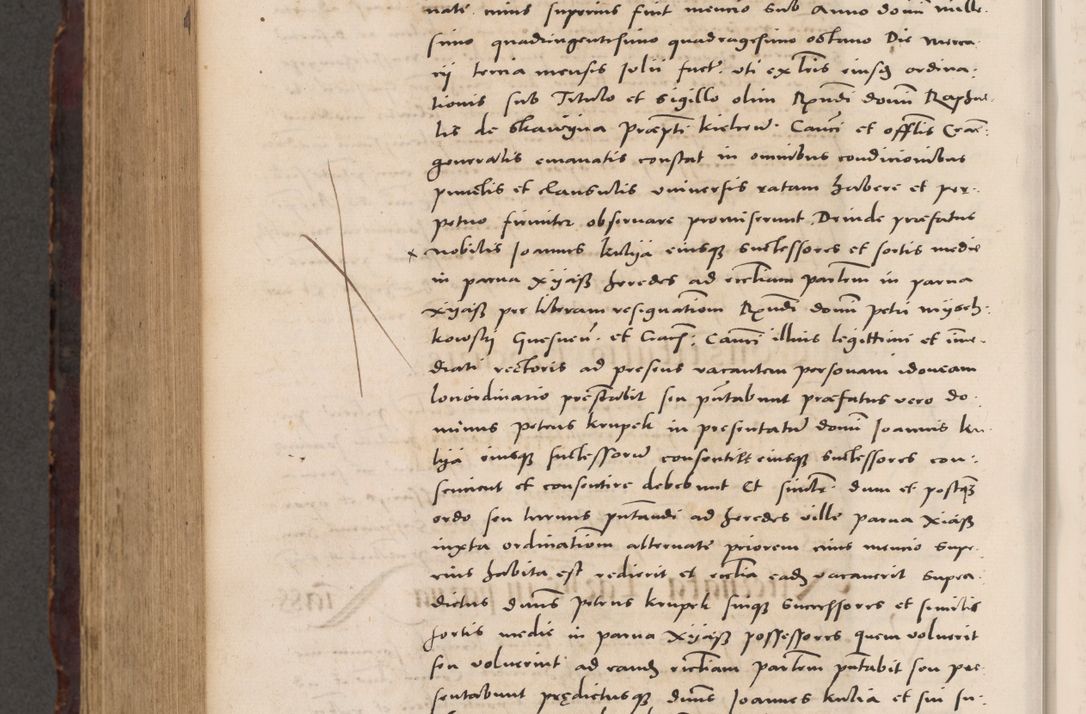 nate cuius superius fuit mencio sub Anno domi mille
simo quadringentesimo quadragesimo octavo Die merca
rij tercia mensis Julii fact. uti ex lris eiusd ordina
tionis sub Titulo et sigillo olim Rendi domi Raphae
lis de Skawyna Præpti kielcen. Canci et offlis Crac
generalis emanatis constat in omnibus condicionibus
punctis et clausulis universis ratam habere et per
petuo firmiter observare promiserunt. Deinde præfatus
nobilis Joannes kulija eiusq successores et sortis medie
in parva Xijaß heredes ad ecctiam parlem in parva
Xijaß per liberam resignationem Rendi domi petri mysch
kowsky Gnesnen. et Crac. Canci illius legittimi et ime
diati rectoris ad presens vacantem personam idoneam
loci ordinario presentabit seu pntabunt præfatus vero do
minus Petrus krupek in presentatum domi Joannis ku
lija eiusq successorum consentit eiusq successores con
sencient et consentire debebunt Et simtr dum et postq
ordo seu turnus pntandi ad heredes ville parva Xiaß
iuxta ordinationem alternate priorem cuius mencio supe
rius habita est redierit et ecctia ead vacaverit supra
dictus dnus Petrus krupek suiqe successores et similis
sortis medie in parva Xijaß possessores quem voluerit
seu voluerint ad eand ecctiam parlem pntabit seu pre
sentabunt prędictusq dnus Joannes kulia et sui su